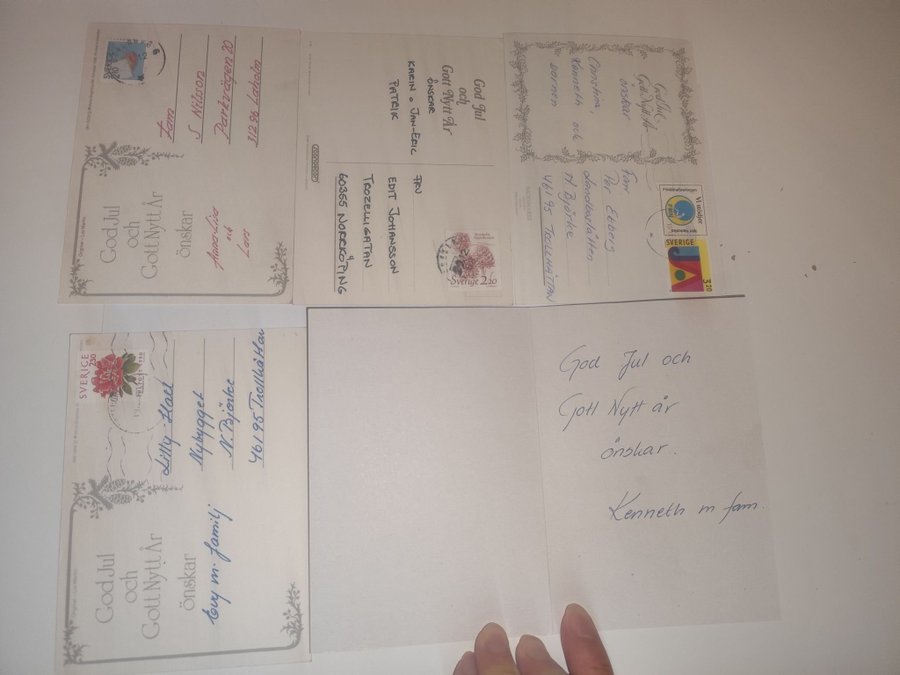 God Jul
och
Gott Nytt År
önskar
Anna-Lisa
och
Lars
Fam
S Nilsson
Parkvägen 20
312 96 Laholm
God Jul
och
Gott Nytt År
ÖNSKAR
KARIN o JAN-ERIC
PATRIK
FRU
EDIT JOHANSSON
TROZELLIGATAN 9
60355 NORRKÖPING
Sverige 2.10
God Jul
Gott Nytt År
önskar
Christina,
Kenneth och
barnen
Fam
Per Ebberg
Landbostätten
N. Björke
461 95 TOLLHÄTTAN
Vi önskar
SVERIGE
3.20
God Jul
och
Gott Nytt År
önskar
Evy m. familj
SVERIGE 2.30
Lilly Hall
Nybygget
N. Björke
461 95 Trollhättan
God Jul och
Gott Nytt år
önskar.
Kenneth m fam.